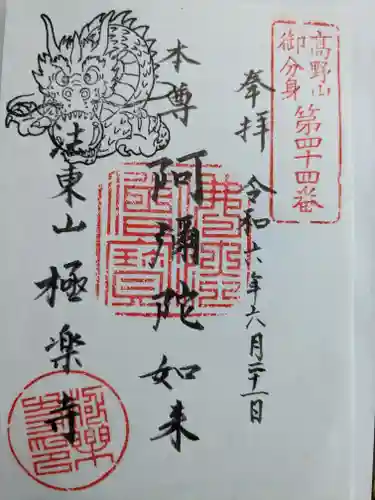 高野山
御分身
第四十四番
奉拝
令和六年六月二十一日
本尊
阿彌陀如来
東山極楽寺
佛法僧寶